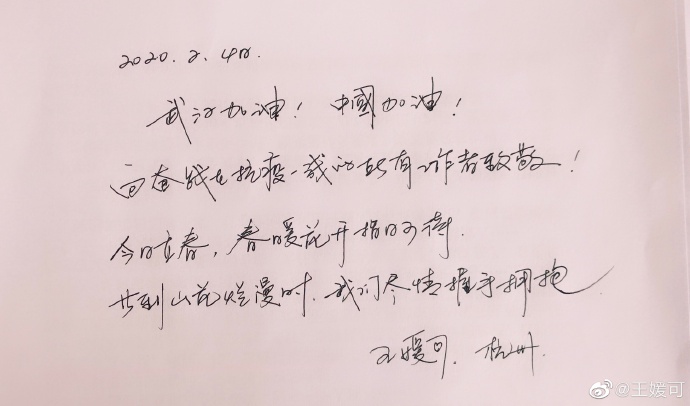 2020.2.4日.
武汉加油！中國加油！
向奋战在抗疫一线的所有工作者致敬！
今日立春，春暖花开指日可待.
共到山花烂漫时.我们尽情握手拥抱
王媛可.杭州.
@王媛可